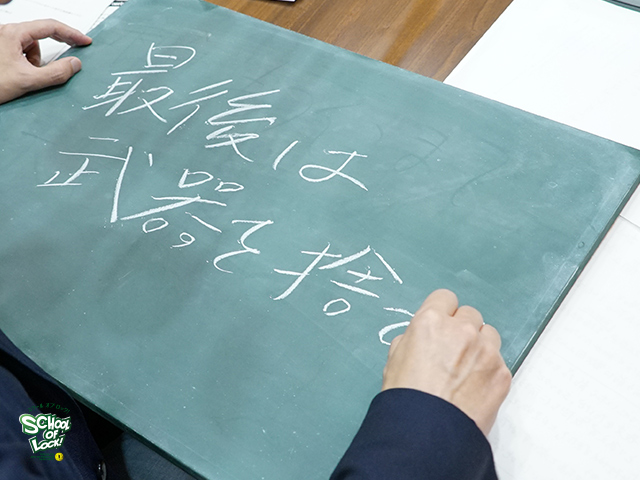 最後は
武器を捨て
SCHOOL
OF
LOCK!